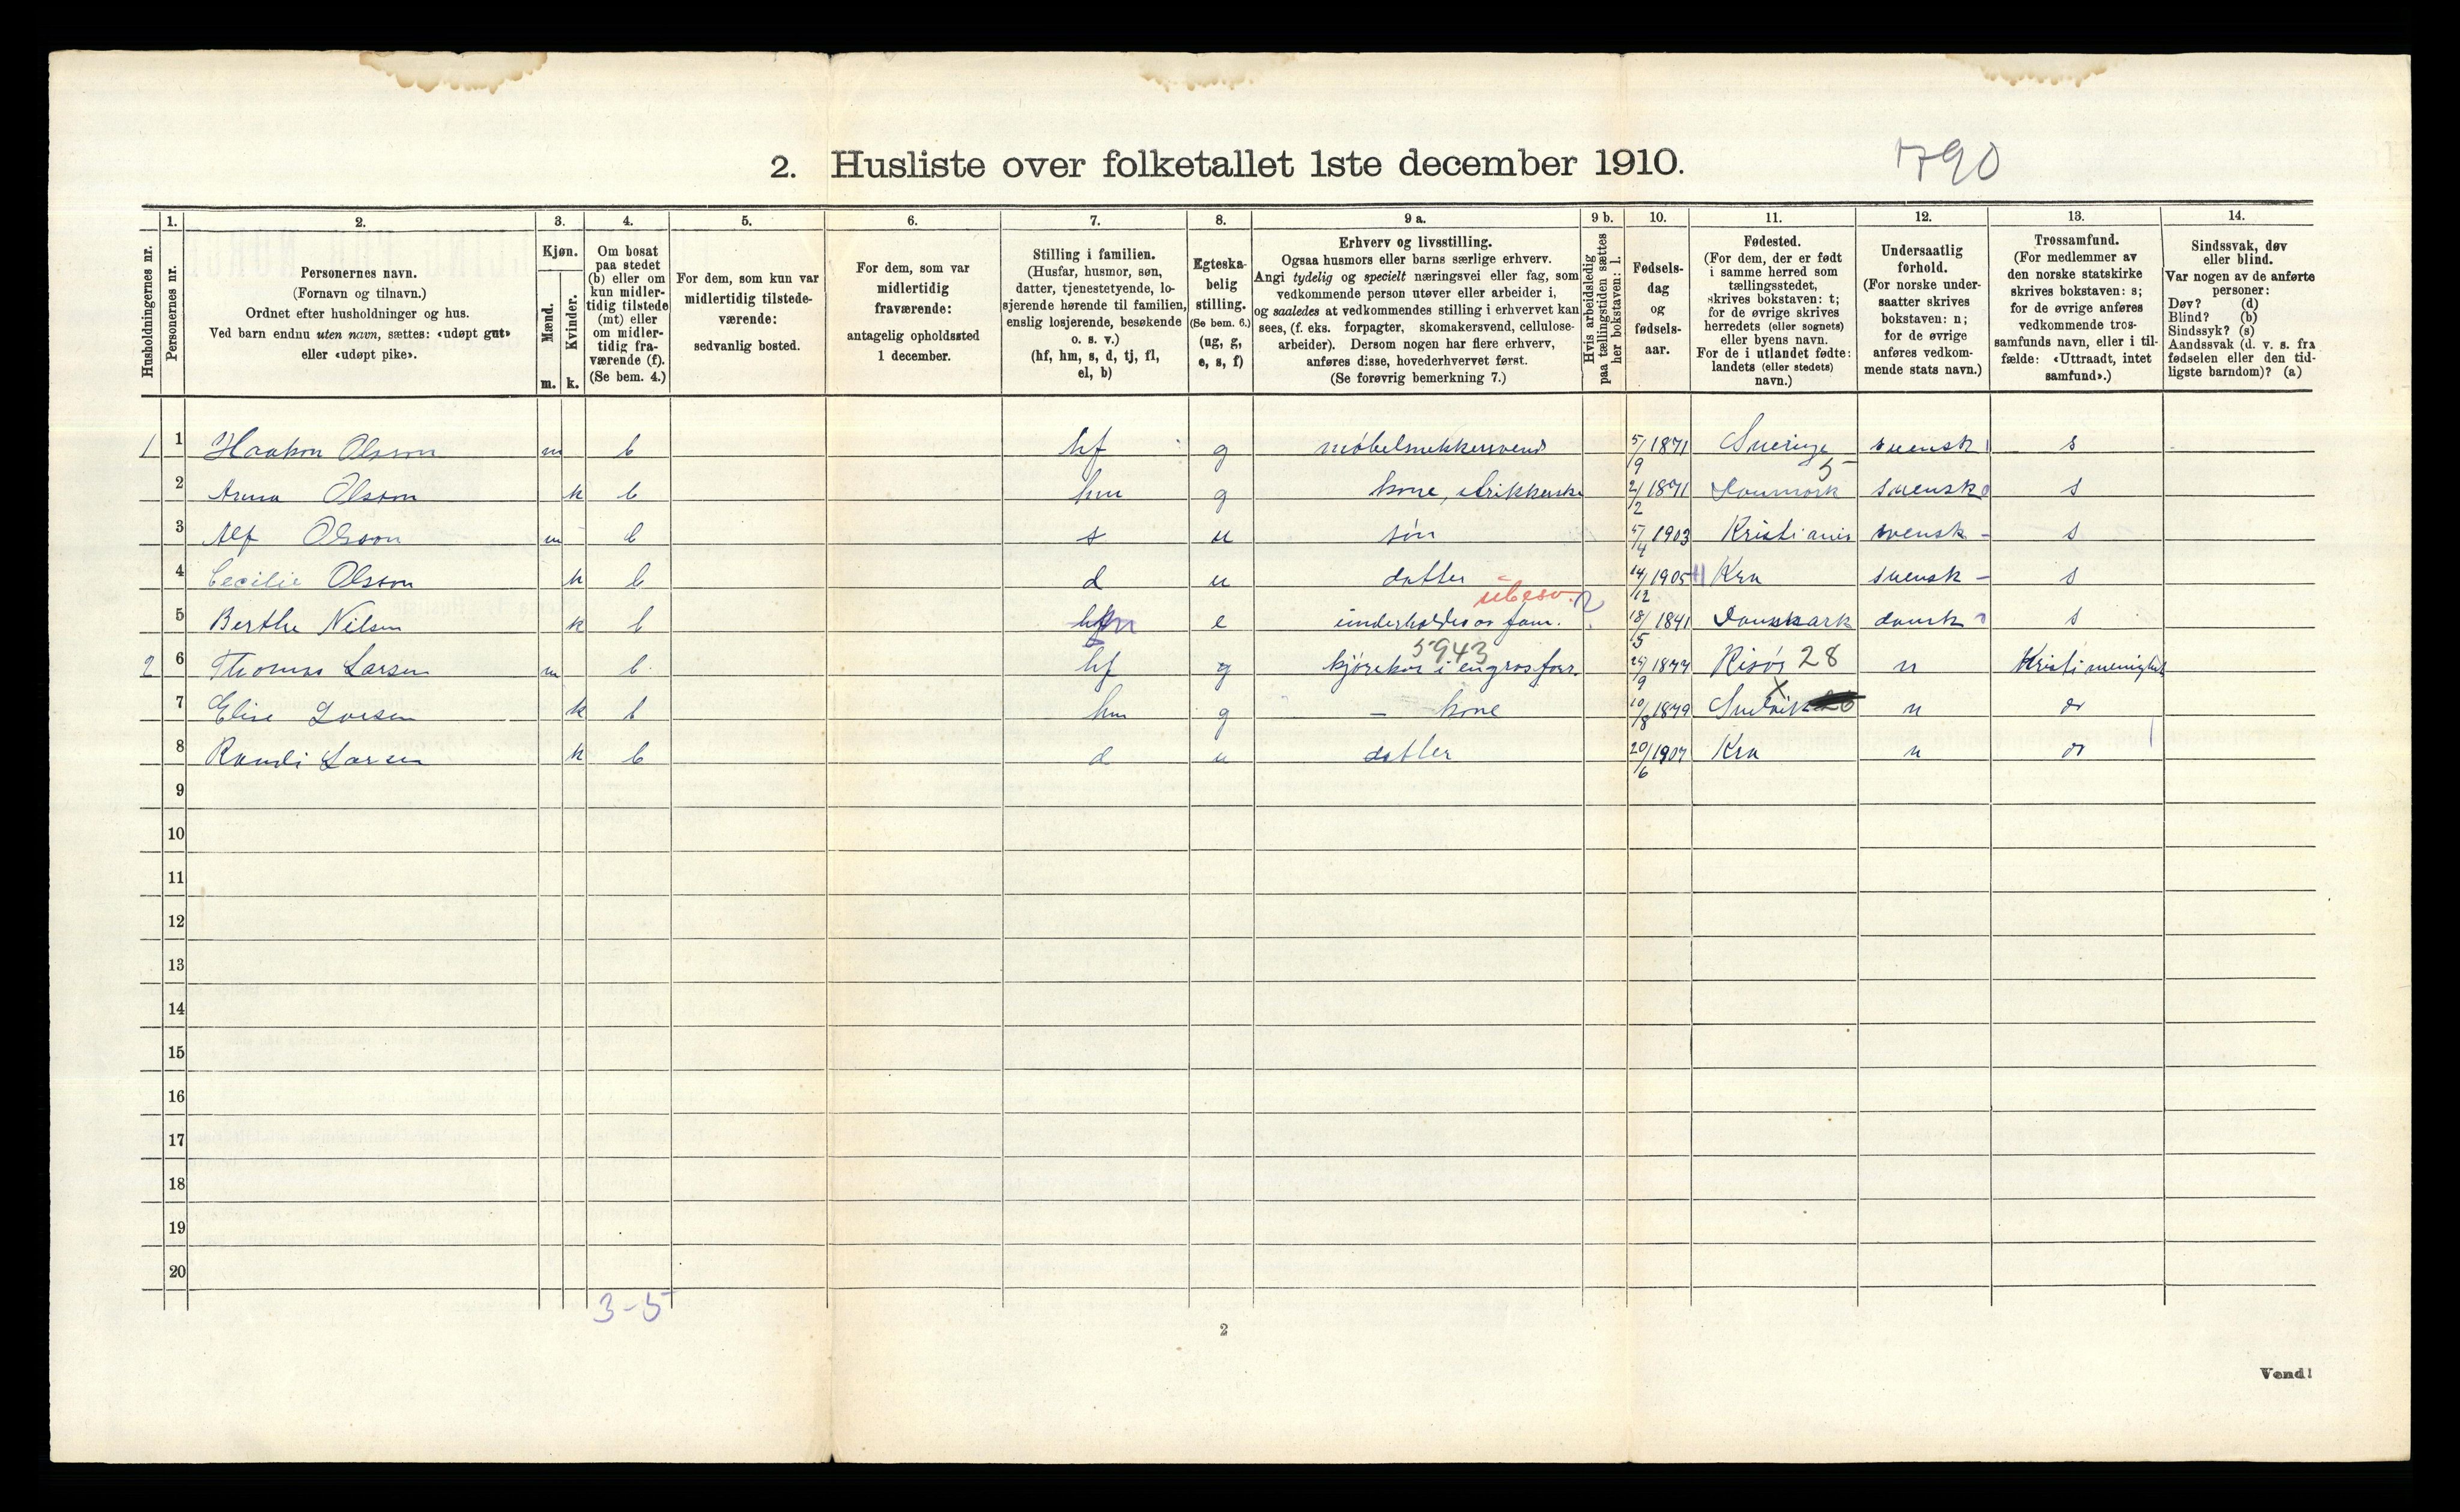 2. Husliste over folketallet 1ste december 1910.
790
1. 2. 3. 4. 5. 6. 7. 8. 9 a. 9 b. 10. 11. 12. 13. 14.
Husholdningernes nr.
Personernes nr.
Personernes navn.
(Fornavn og tilnavn.)
Ordnet efter husholdninger og hus.
Ved barn endnu uten navn, sættes: «udøpt gut»
eller «udøpt pike».
Kjøn.
Mænd.
Kvinder.
m. k.
Om bosat
paa stedet
(b) eller om
kun midler-
tidig tilstede
(mt) eller
om midler-
tidig fra-
værende (f).
(Se bem. 4.)
For dem, som kun var
midlertidig tilstede-
værende:
sedvanlig bosted.
For dem, som var
midlertidig
fraværende:
antagelig opholdssted
1 december.
Stilling i familien.
(Husfar, husmor, søn,
datter, tjenestetyende, lo-
sjerende hørende til familien,
enslig losjerende, besøkende
o. s. v.)
(hf, hm, s, d, tj, fl,
el, b)
Egteska-
belig
stilling.
(Se bem. 6.)
(ug, g,
e, s, f)
Erhverv og livsstilling.
Ogsaa husmors eller barns særlige erhverv.
Angi tydelig og specielt næringsvei eller fag, som
vedkommende person utøver eller arbeider i,
og saaledes at vedkommendes stilling i erhvervet kan
sees, (f. eks. forpagter, skomakersvend, cellulose-
arbeider). Dersom nogen har flere erhverv,
anføres disse, hovederhvervet først.
(Se forøvrig bemerkning 7.)
Hvis arbeidsledig
paa tællingstiden sættes
her bokstaven: l.
Fødsels-
dag
og
fødsels-
aar.
Fødested.
(For dem, der er født
i samme herred som
tællingsstedet,
skrives bokstaven: t;
for de øvrige skrives
herredets (eller sognets)
eller byens navn.
For de i utlandet fødte:
landets (eller stedets)
navn.)
Undersaatlig
forhold.
(For norske under-
saatter skrives
bokstaven: n;
for de øvrige
anføres vedkom-
mende stats navn.)
Trossamfund.
(For medlemmer av
den norske statskirke
skrives bokstaven: s;
for de øvrige anføres
vedkommende tros-
samfunds navn, eller i til-
fælde: «Uttraadt, intet
samfund».)
Sindssvak, døv
eller blind.
Var nogen av de anførte
personer:
Døv? (d)
Blind? (b)
Sindssyk? (s)
Aandssvak (d. v. s. fra
fødselen eller den tid-
ligste barndom)? (a)
1 1 Haakon Olsson m b hf g møbelsnekkersvend 5/9 1871 Sverige svensk s
2 Anna Olsson k b hm g kone, strikkerske 2/12 1871 Danmark 5 svensk s
3 Alf Olsson m b s u søn 5/4 1903 Kristiania svensk - s
4 Cecilie Olsson k b d u datter 14/12 1905 Kra svensk - s
ubesv.
5 Berthe Nilsen k b e underholdes av fam. 18/5 1841 Danmark dansk s
5943
2 6 Thomas Larsen m b hf g kjørekar i engrosforr. 29/9 1877 Risør 28 n Kristi menighet
7 Elise Larsen k b hm g - kone 10/8 1879 Svelvik n do
8 Randi Larsen k b d u datter 20/6 1907 Kra n do
9
10
11
12
13
14
15
16
17
18
19
20
3-5
2
Vend!